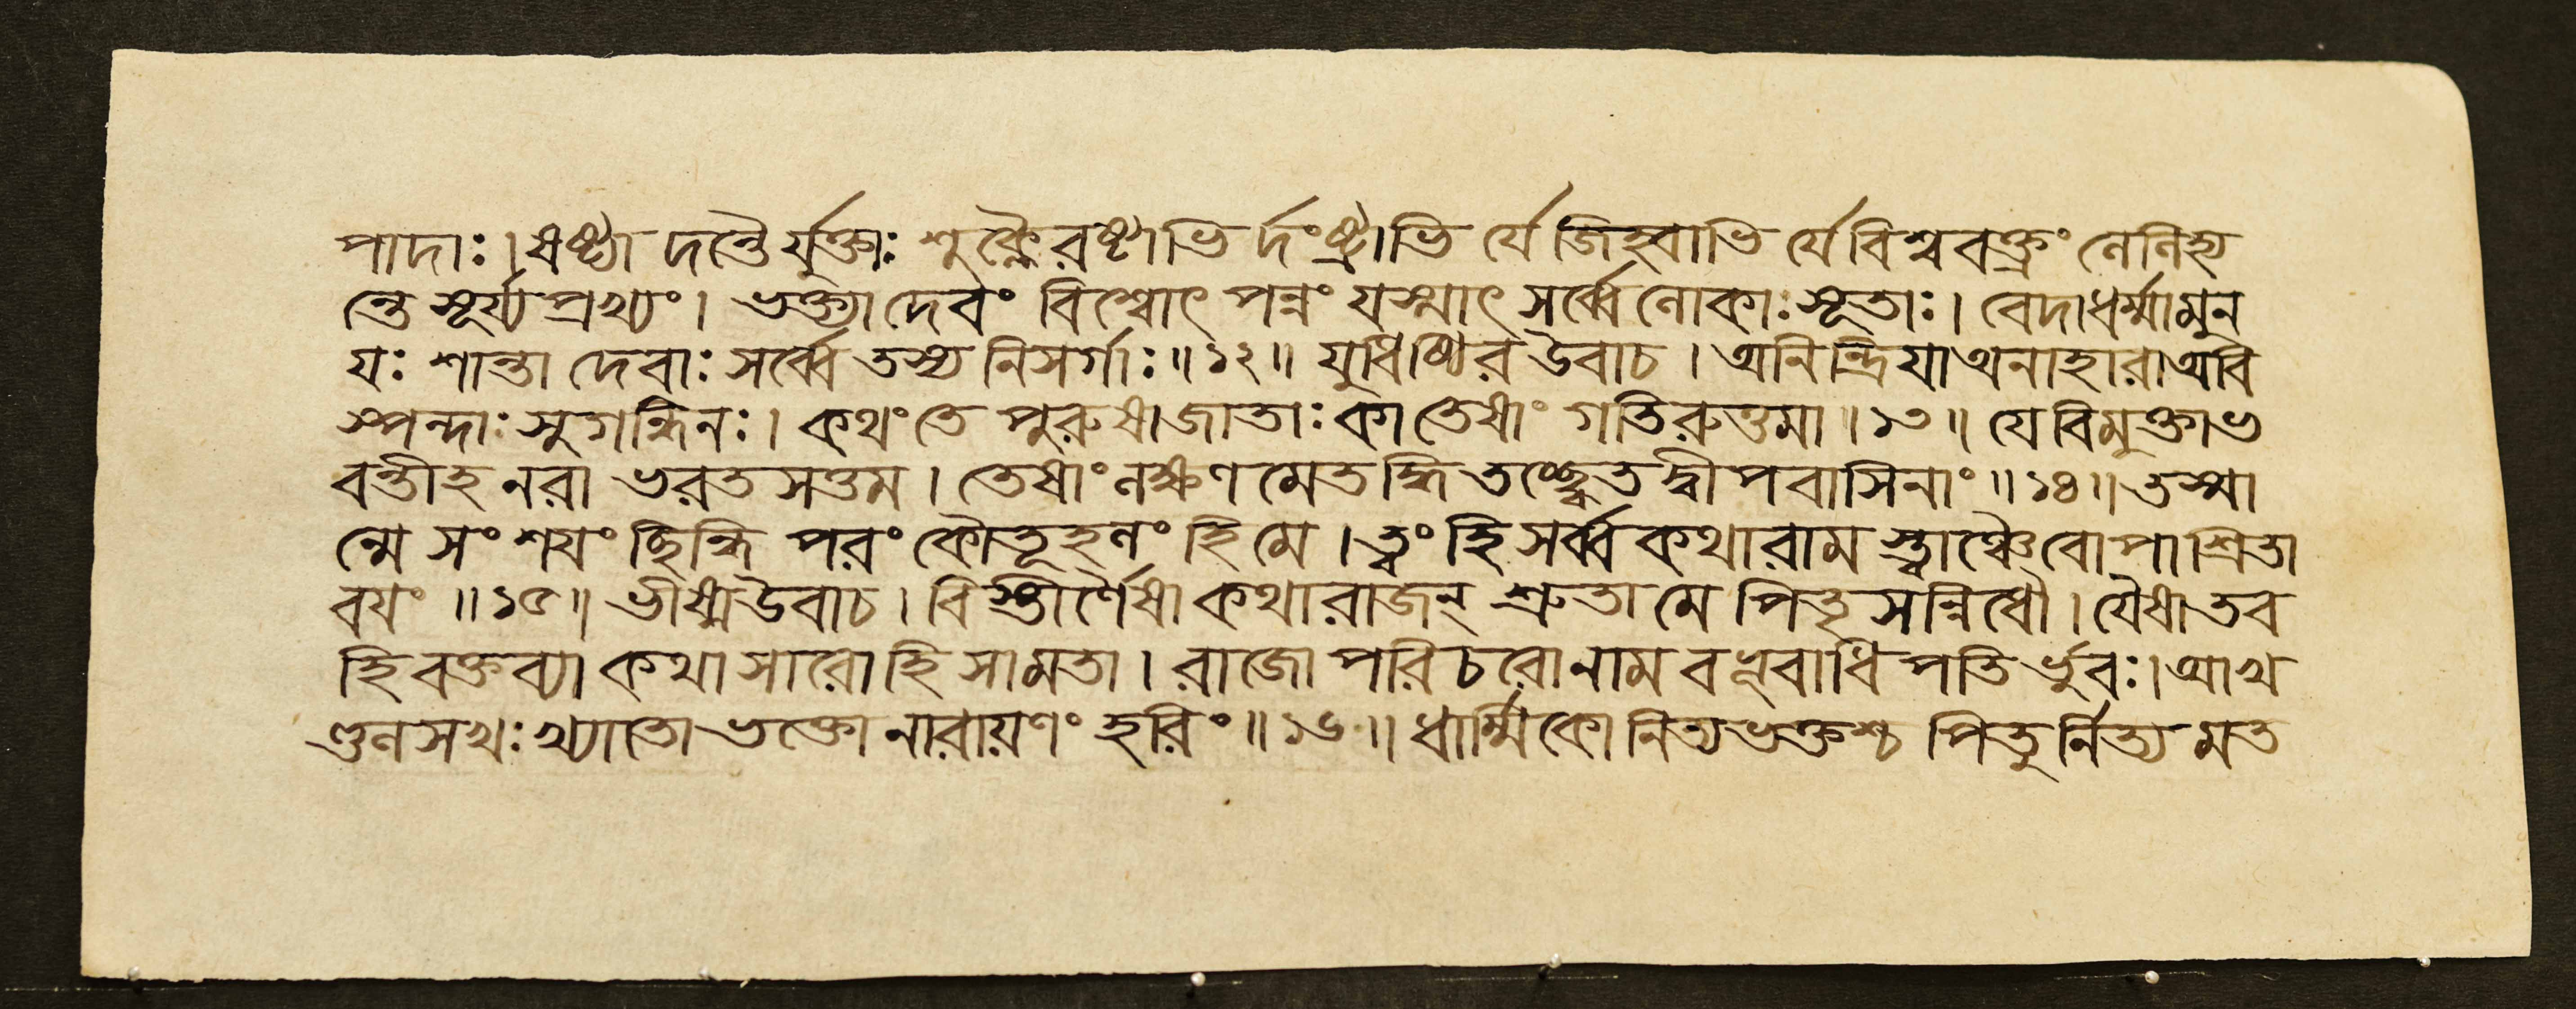 পাদাঃ।ষষ্ট্যা দন্তৈ র্যুক্তাঃ শুক্লৈরষ্টাভি র্দংষ্ট্রাভি র্যে জিহ্বাভি র্যে বিশ্ববক্ত্রং লেলিহ্য
ন্তে সূর্য্যপ্রখ্যং। ভক্ত্যা দেবং বিশ্বোৎ পন্নং যস্মাৎ সর্ব্বে লোকাঃ সূতাঃ। বেদা ধর্ম্মা মুন
যঃ শান্তা দেবাঃ সর্ব্বে তস্য নিসর্গাঃ॥১২॥ যুধিষ্ঠির উবাচ। অনিন্দ্রিযা অনাহারা অবি
স্পন্দাঃ সুগন্ধিনঃ। কথং তে পুরুষা জাতাঃ কা তেষাং গতিরুত্তমা॥১৩॥ যে বিমুক্তা ভ
বন্তীহ নরা ভরতসত্তম। তেষাং লক্ষণ মেতদ্ধি তচ্ছ্বেতদ্বীপবাসিনাং॥১৪॥ তস্মা
ন্মে সংশযং ছিন্ধি পরং কৌতূহলং হি মে। ত্বং হি সর্ব্বকথারাম স্ত্বাঞ্চৈবোপাশ্রিতা
বযং॥১৫॥ ভীষ্ম উবাচ। বিস্তীর্ণৈষা কথা রাজন্ শ্রুতা মে পিতৃসন্নিধৌ। যৈষা তব
হি বক্তব্যা কথাসারো হি সা মতা। রাজোপরিচরো নাম বভূবাধিপতি র্ভুবঃ। আখ
ণ্ডলসখঃ খ্যাতো ভক্তো নারায়ণং হরিং॥১৬॥ ধার্ম্মিকো নিত্যভক্তশ্চ পিতু র্নিত্য মত